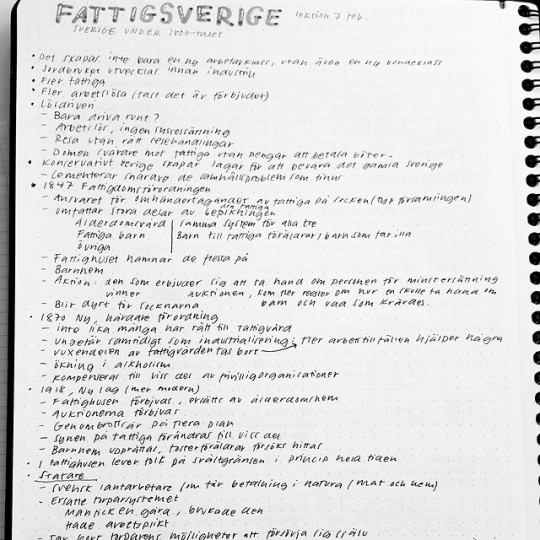 FATTIGSVERIGE lektion 7 feb
SVERIGE UNDER 1800-talet
• Det skapas inte bara en ny arbetarklass, utan även en ny bondeklass
• Jordbruket utvecklas innan industrin
• Fler fattiga
• Fler arbetslösa (fast det är förbjudet)
• Lösdriven
- Bara driva runt?
- Arbetslös, ingen sysselsättning
- Resa utan rätt resehandlingar
- Domen svårare mot fattiga utan pengar att betala böter.
• Konservativt Sverige skapar lagar för att bevara det gamla Sverige
- Cementerar snarare de samhällsproblem som finns
• 1847 Fattigdomsförordningen
- Ansvaret för omhändertagandet av fattiga på socken (typ församlingen)
- omfattar stora delar av den fattiga befolkningen
Ålderdomsvård | samma system för alla tre
Fattiga barn | Barn till fattiga föräldrar/barn som far illa
övriga
- Fattighuset hamnar de flesta på
- Barnhem
- Aktion: den som erbjuder sig att ta hand om personen för minst ersättning
vinner auktionen, kom fler regler om hur en skulle ta hand om
- Blir dyrt för socknarna barn och vad som krävdes.
• 1870 Ny, hårdare förordning
- inte lika många har rätt till fattigvård
- Ungefär samtidigt som industrialisering; fler arbetstillfällen hjälper några
- vuxendelen av fattigvården tas bort
- ökning i alkoholism
- kompenseras till viss del av frivilligorganisationer
• 1918, Ny lag (mer modern)
- Fattighusen förbjuds, ersätts av ålderdomshem
- Auktionerna förbjuds
- Genombrottsår på flera plan
- synen på fattiga förändras till viss del
- Barnhem upprättas, fosterföräldrar försöks hittas
• I fattighusen lever folk på svältgränsen i princip hela tiden
• Statare
- svensk lantarbetare som får betalning i natura (mat och hem)
- Ersatte torparsystemet
Man fick en gård, brukade den
Hade arbetsplikt
- Tar bort torparens möjligheter att försörja sig själv